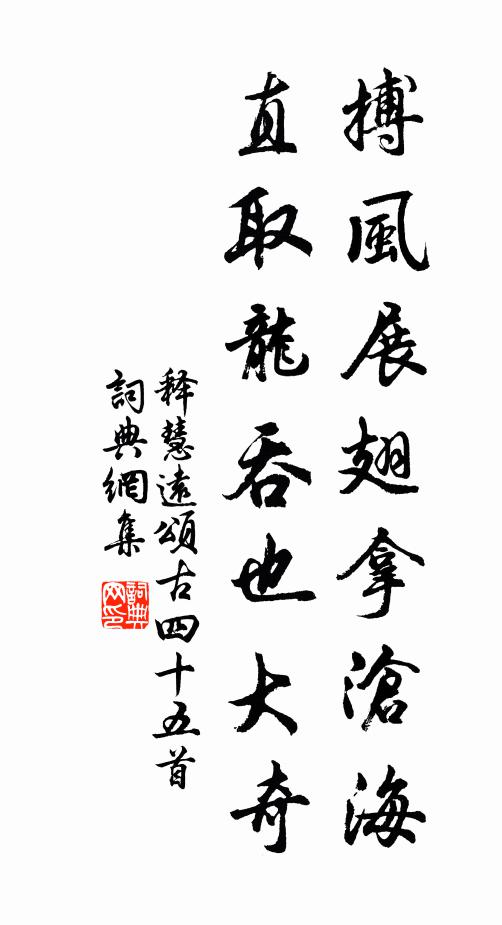 搏風展翅拿滄海
直取龍吞也大奇
释慧遠頌古四十五首
詞典網集
詞典
网印